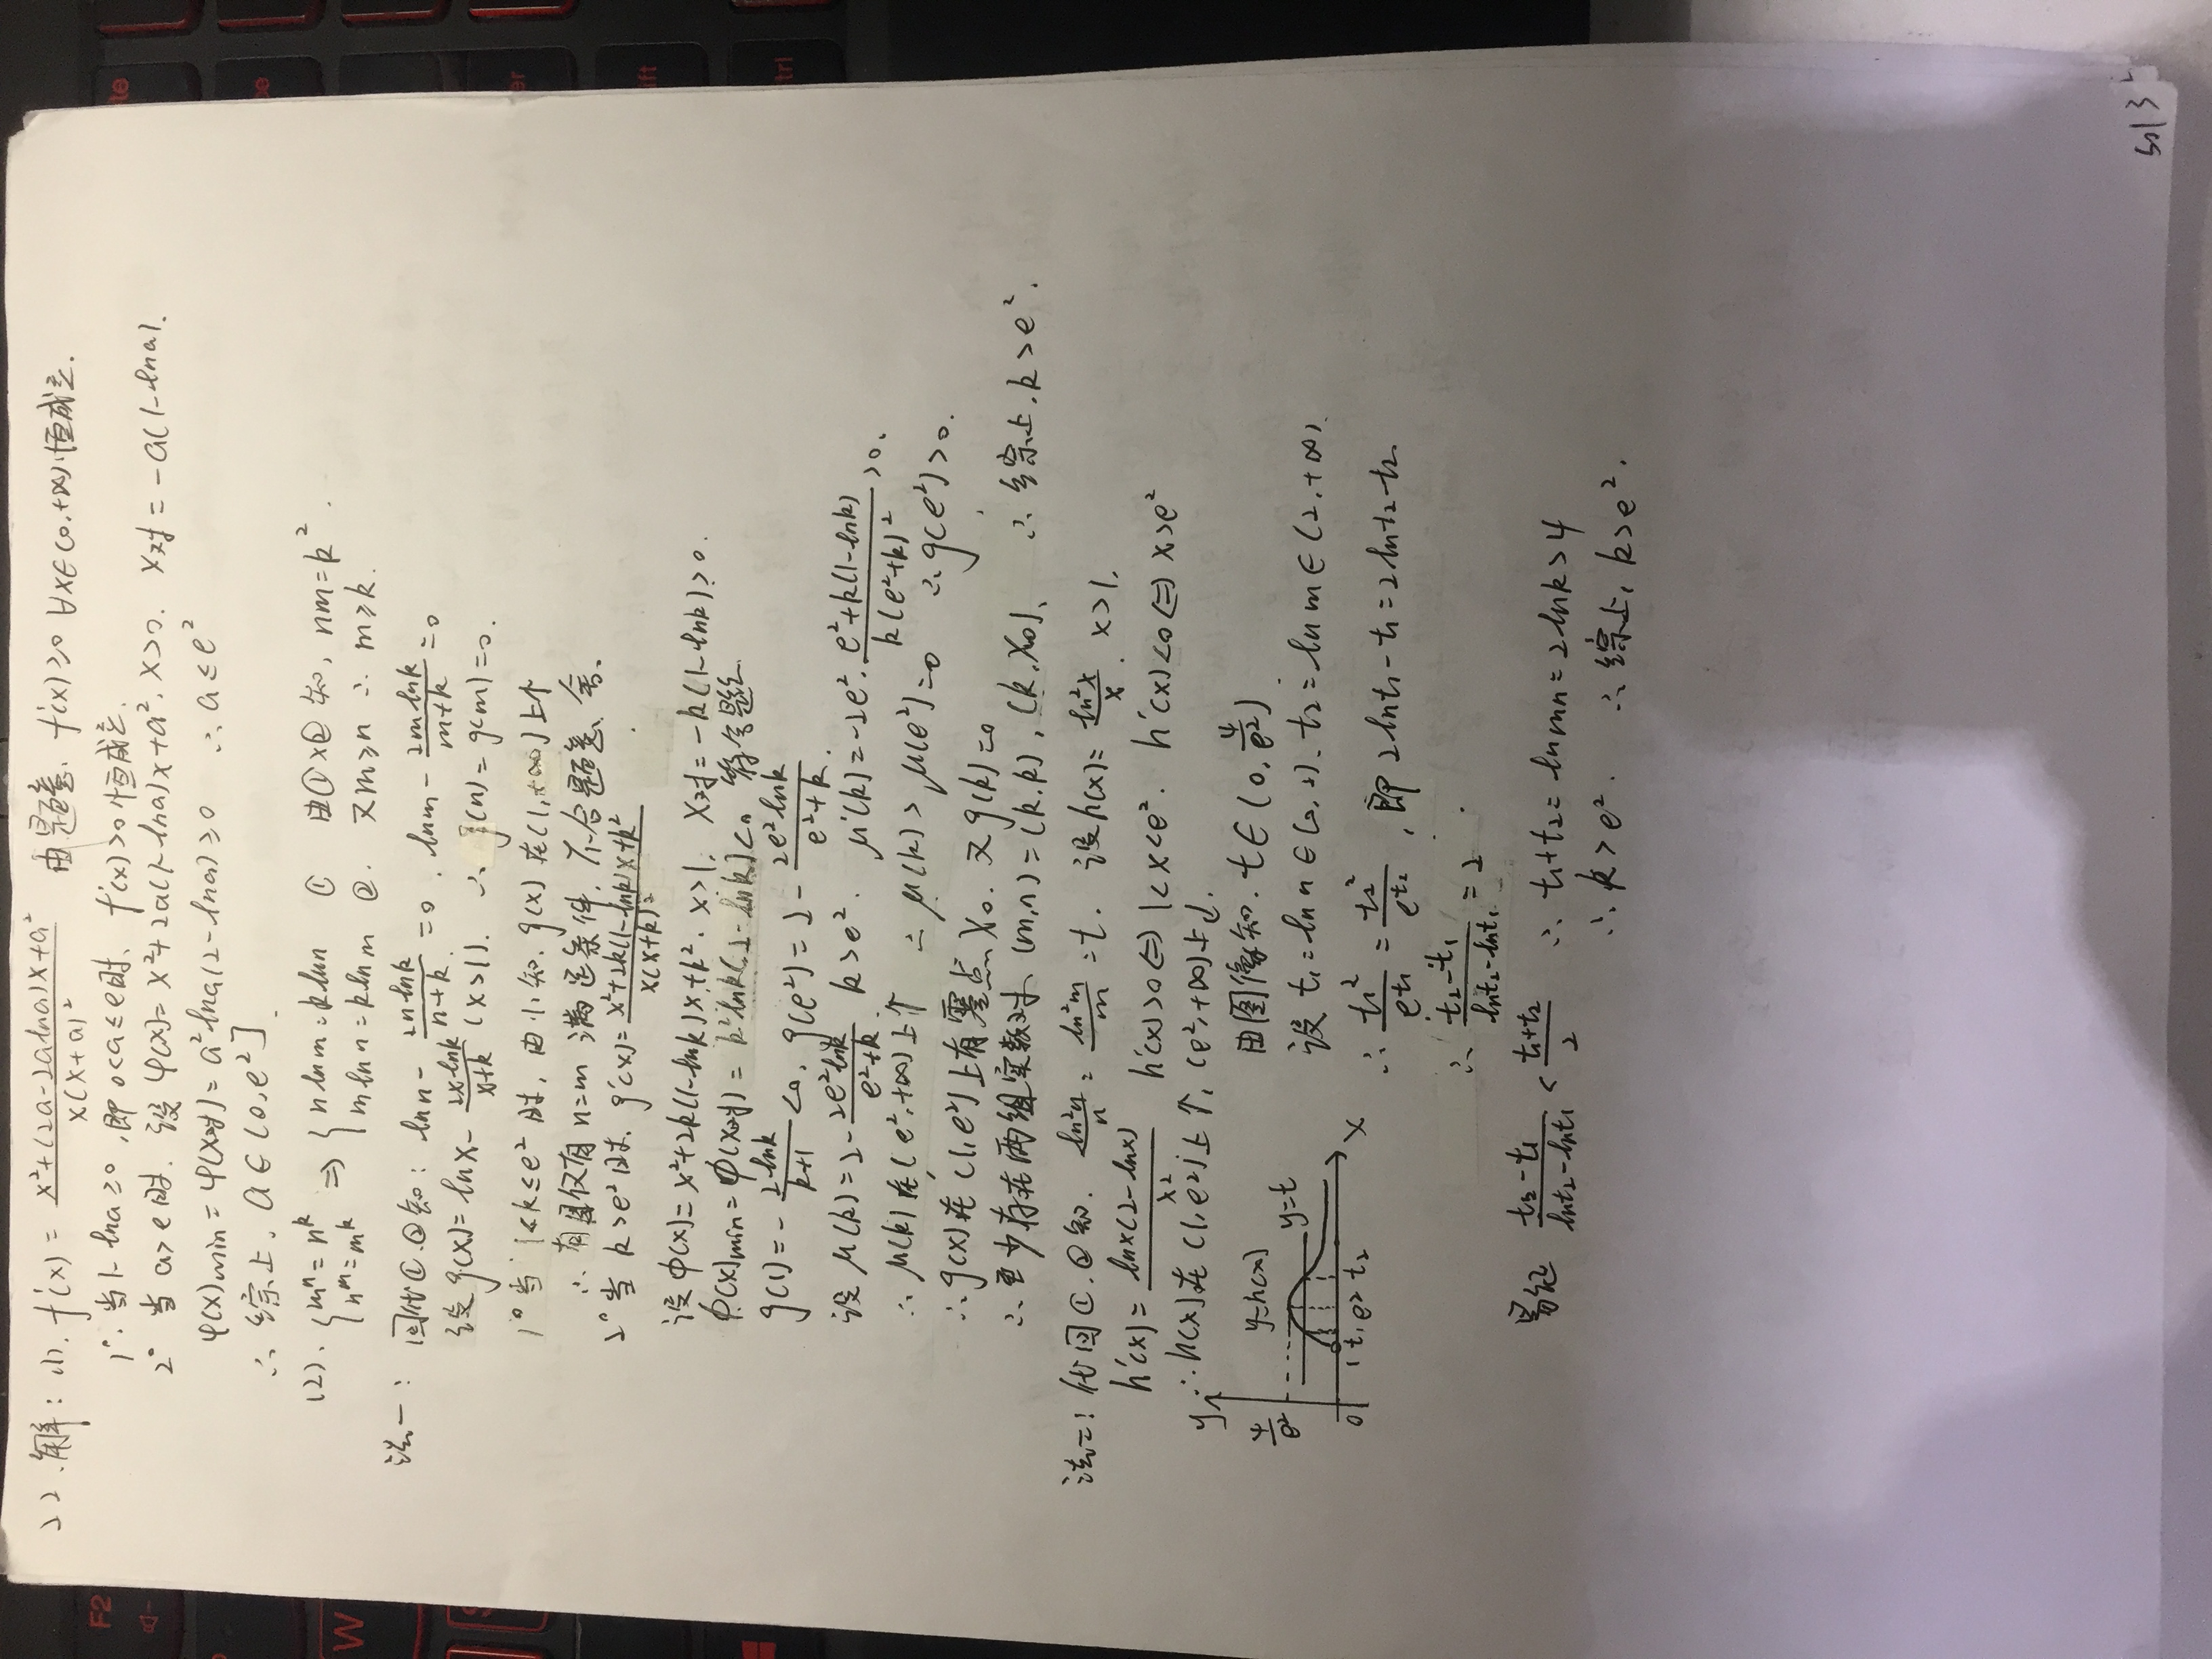 22.解：(1). f'(x) = \frac{x²+(2a-2alna)x+a²}{x(x+a)²} 由题意, f'(x)≥0 ∀x∈(0,+∞)恒成立.
1°. 当1-lna≥0, 即0<a≤e时、f'(x)>0恒成立.
2° 当a>e时. 设φ(x)= x²+2a(1-lna)x+a², x>0. x对 = -a(1-lna).
φ(x)min = φ(x对) = a²lna(2-lna)≥0 ∴ a≤e²
∴ 综上, a∈(0,e²].
(2). {m^n = n^k, n^m = m^k ⇒ {n ln m = k ln n ①, m ln n = k ln m ②. 由①×②知, nm=k². 又m≥n ∴ m≥k.
法一: 回代①.②知: ln n - \frac{2n ln k}{n+k} = 0. ln m - \frac{2m ln k}{m+k} = 0
设g(x)= ln x - \frac{2x ln k}{x+k} (x>1). ∴ g(n) = g(m) = 0.
1° 当 1<k≤e² 时, 由(1)知. g(x) 在(1,+∞)上↑
∴ 有且仅有 n=m 满足条件, 不合题意、舍、
2° 当 k>e²时. g'(x)= \frac{x²+2k(1-lnk)x+k²}{x(x+k)²}
设φ(x)= x²+2k(1-lnk)x+k². x>1, x对 = -k(1-lnk)>0.
φ(x)min = φ(x对) = k²lnk(2-lnk)<0 符合题意
g(1) = -\frac{2lnk}{k+1} <0. g(e²) = 2-\frac{2e²lnk}{e²+k}.
设 μ(k)=2-\frac{2e²lnk}{e²+k}. k>e². μ'(k)=-2e²·\frac{e²+k(1-lnk)}{k(e²+k)²} >0.
∴ μ(k)在(e²,+∞)上↑ ∴ μ(k)>μ(e²)=0 ∴g(e²)>0.
∴g(x)在(1,e²)上有零点x₀. 又g(k)=0
∴至少存在两组实数对、(m,n)=(k,k), (k,x₀)、 ∴ 综上, k>e².
法二: 代回①.②知. \frac{ln²n}{n} = \frac{ln²m}{m} = t. 设h(x)=\frac{ln²x}{x}, x>1.
h'(x)= \frac{lnx(2-lnx)}{x²} h'(x)>0⇔1<x<e². h'(x)<0⇔x>e²
∴h(x)在(1,e²)上↑, (e²,+∞)上↓.
y
\frac{4}{e²} y=h(x) y=t
0 1 t₁ e² t₂ x
由图像知. t∈(0,\frac{4}{e²})
设 t₁=ln n∈(0,2). t₂=ln m∈(2,+∞).
∴ \frac{t₁²}{e^{t₁}} = \frac{t₂²}{e^{t₂}}, 即2lnt₁-t₁=2lnt₂-t₂
∴ \frac{t₂-t₁}{lnt₂-lnt₁} = 2
易证 \frac{t₂-t₁}{lnt₂-lnt₁} < \frac{t₁+t₂}{2} ∴ t₁+t₂=ln mn=2lnk>4
∴ k>e². ∴ 综上, k>e².
F2
W